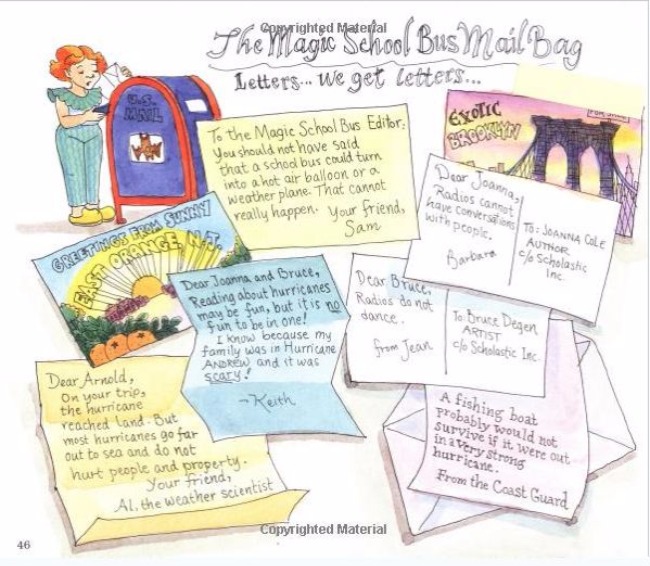 Copyrighted Material
The Magic School Bus Mail Bag
Letters... we get letters...
U.S.
MAIL
To the Magic School Bus Editor:
You should not have said
that a school bus could turn
into a hot air balloon or a
weather plane. That cannot
really happen. Your friend,
Sam
EXOTIC
BROOKLYN
Dear Joanna,
Radios cannot
have conversations
with people.
Barbara
To: JOANNA COLE
AUTHOR
c/o Scholastic
Inc.
GREETINGS FROM SUNNY
EAST ORANGE N.J.
Dear Joanna and Bruce,
Reading about hurricanes
may be fun, but it is no
fun to be in one!
I know because my
family was in Hurricane
ANDREW and it was
scary!
-Keith
Dear Bruce,
Radios do not
dance.
from Jean
To: Bruce Degen
ARTIST
c/o Scholastic Inc.
Dear Arnold,
On your trip,
the hurricane
reached land. But
most hurricanes go far
out to sea and do not
hurt people and property.
Your friend,
Al, the weather scientist
A fishing boat
probably would not
survive if it were out
in a very strong
hurricane.
From the Coast Guard
Copyrighted Material
46